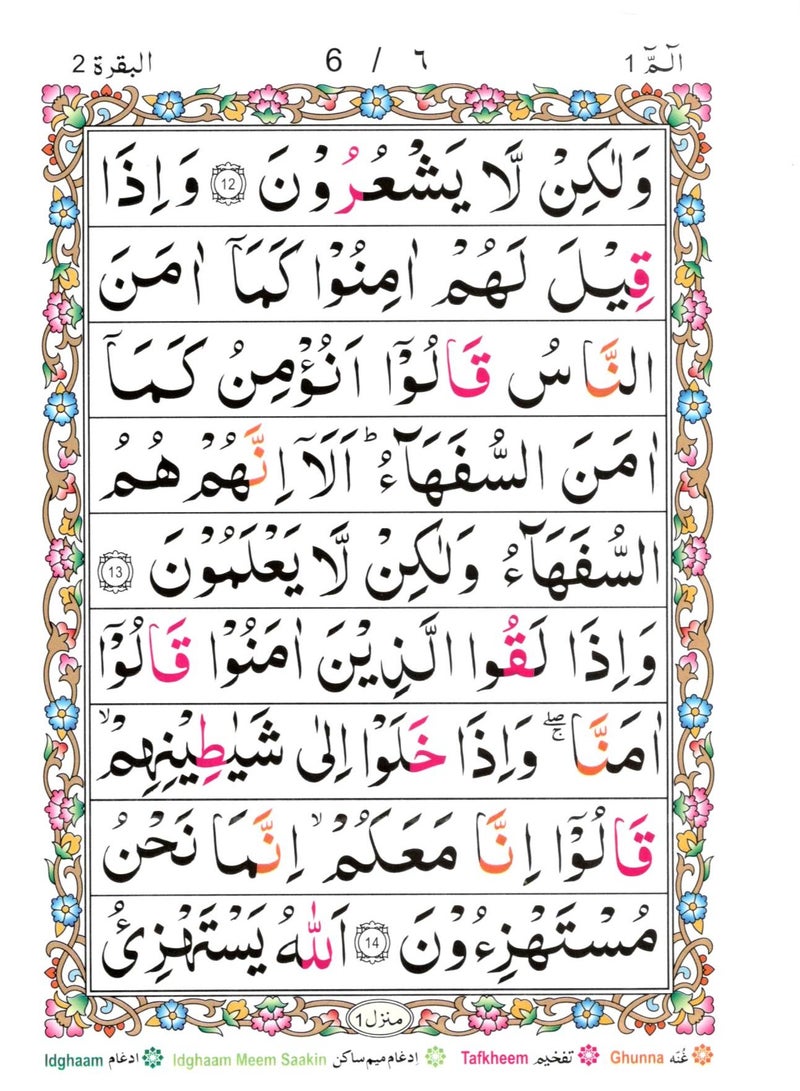 الٓمّٓ 1 6 / ٦ البقرة 2
وَلٰكِنْ لَّا يَشْعُرُوْنَ 12 وَاِذَا
قِيْلَ لَهُمْ اٰمِنُوْا كَمَاۤ اٰمَنَ
النَّاسُ قَالُوْۤا اَنُؤْمِنُ كَمَاۤ
اٰمَنَ السُّفَهَآءُ ؕ اَلَاۤ اِنَّهُمْ هُمُ
السُّفَهَآءُ وَلٰكِنْ لَّا يَعْلَمُوْنَ 13
وَاِذَا لَقُوا الَّذِيْنَ اٰمَنُوْا قَالُوْۤا
اٰمَنَّا ۖۚ وَاِذَا خَلَوْا اِلٰى شَيٰطِيْنِهِمْ ۙ
قَالُوْۤا اِنَّا مَعَكُمْ ۙ اِنَّمَا نَحْنُ
مُسْتَهْزِءُوْنَ 14 اَللّٰهُ يَسْتَهْزِئُ
منزل 1
Ghunna غُنّه Tafkheem تفخيم Idghaam Meem Saakin اِدغام ميم ساكن Idghaam ادغام